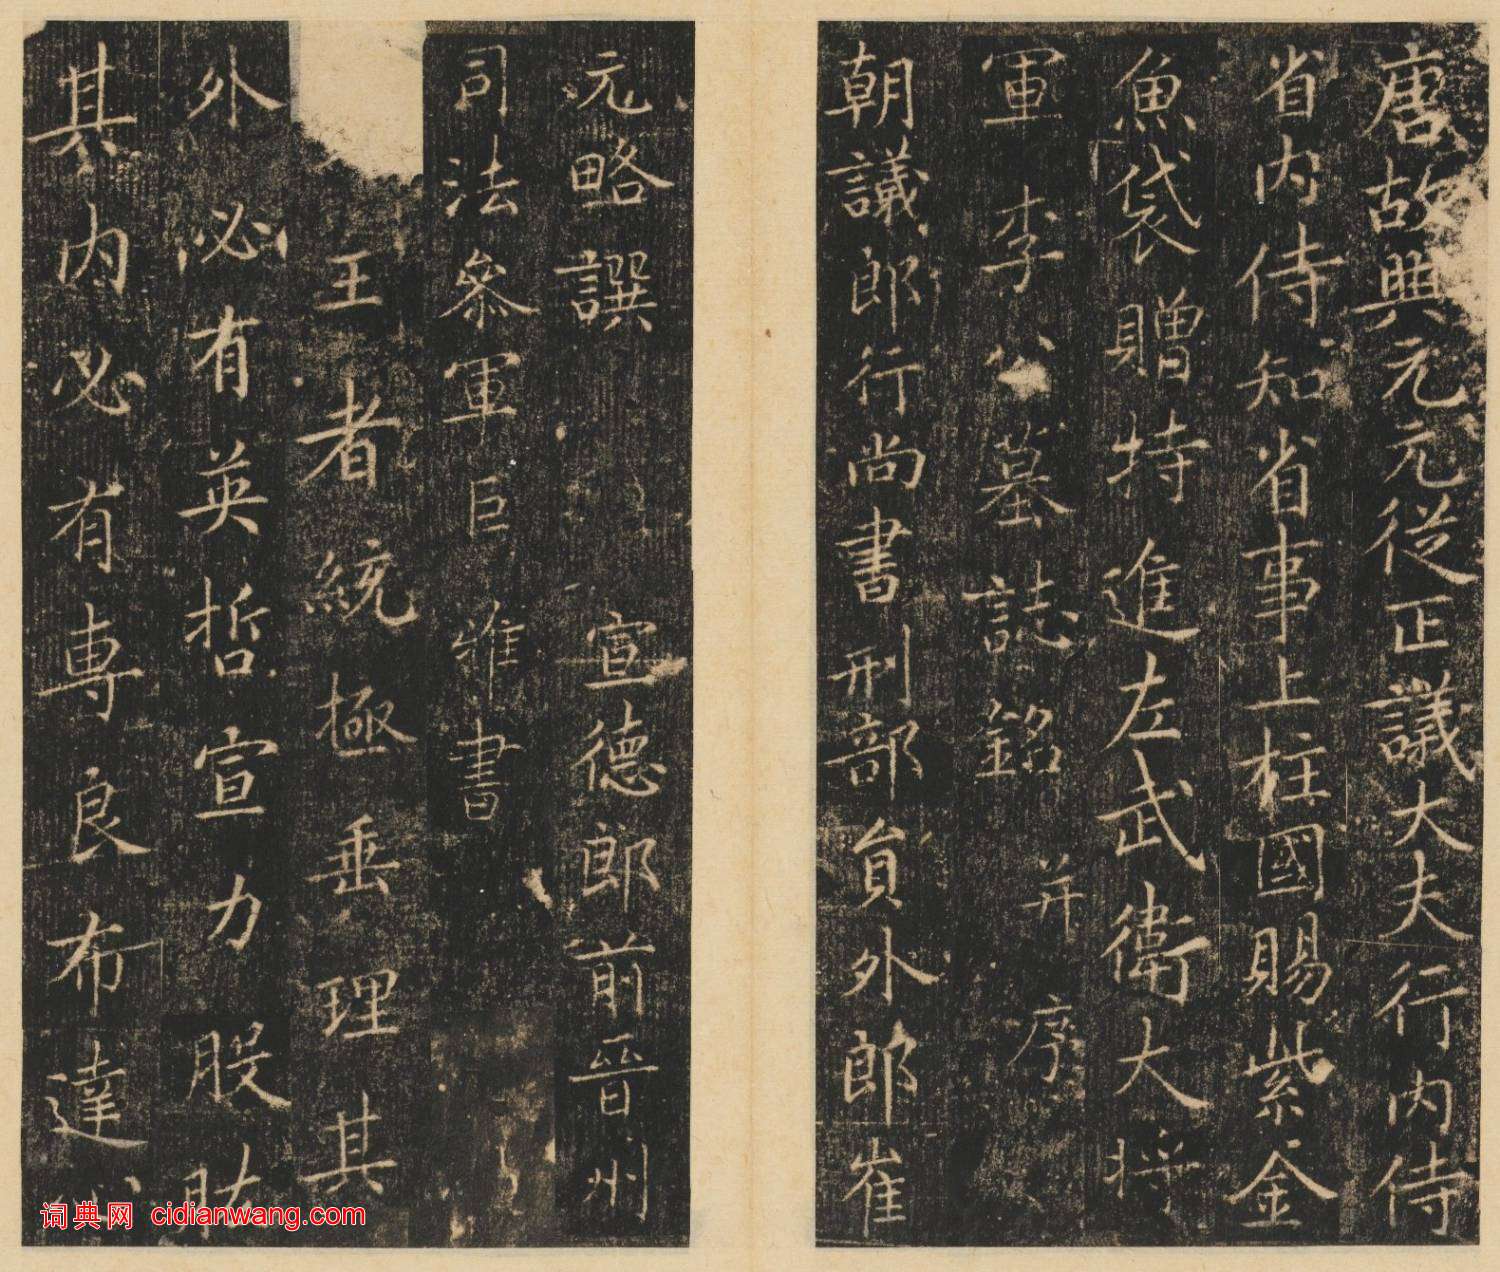 唐故興元元從正議大夫行內侍
省內侍知省事上柱國賜紫金
魚袋贈特進左武衛大將
軍李公墓誌銘并序
朝議郎行尚書刑部員外郎崔
元略譔 宣德郎前晉州
司法參軍巨雅書
王者統極垂理其
外必有英哲宣力股肱
其內必有專良布達心
词典网 cidianwang.com